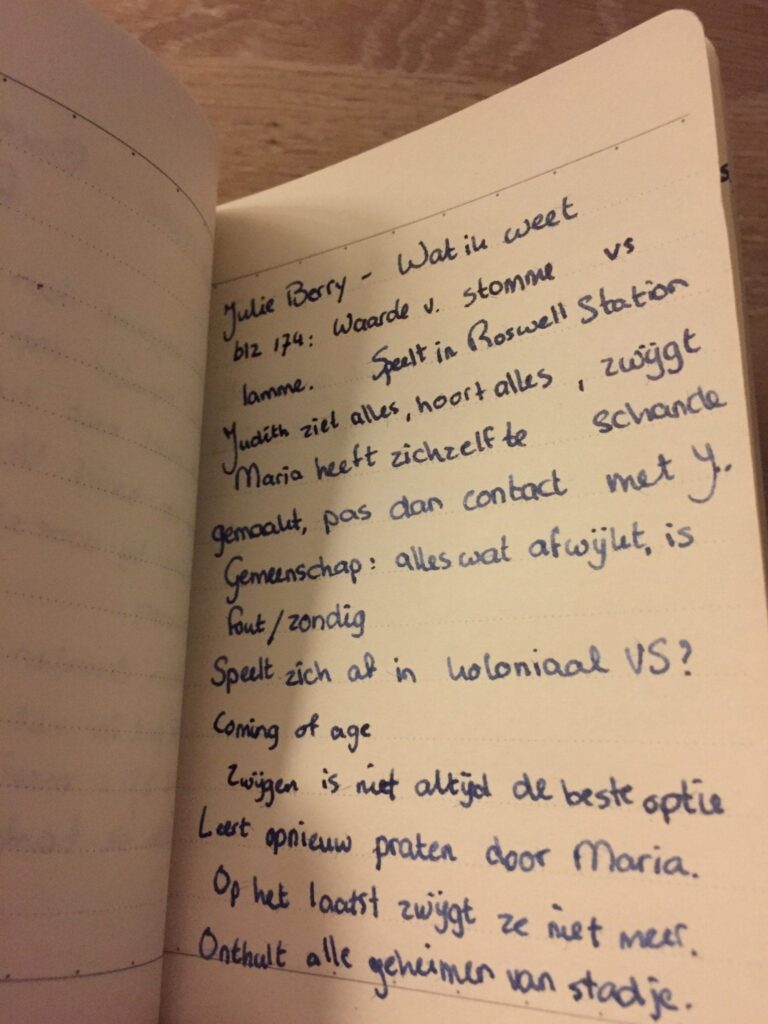 Julie Berry - Wat ik weet
blz 174: Waarde v. stomme vs
lamme. Speelt in Roswell Station
Judith ziet alles, hoort alles, zwijgt
Maria heeft zichzelf te schande
gemaakt, pas dan contact met J..
Gemeenschap: alles wat afwijkt, is
fout/zondig
Speelt zich af in koloniaal VS?
Coming of age
Zwijgen is niet altijd de beste optie
Leert opnieuw praten door Maria.
Op het laatst zwijgt ze niet meer.
Onthult alle geheimen van stadje.